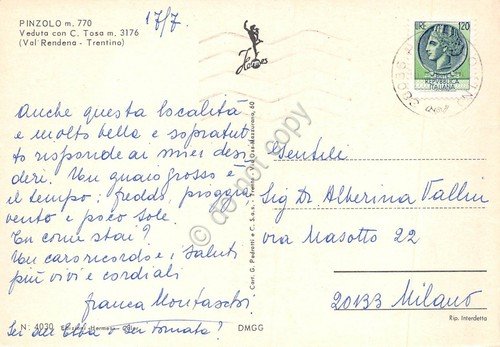 PINZOLO m. 770
Veduta con C. Tosa m. 3176
(Val Rendena - Trentino)
17/7
Hermes
LIRE 120
REPVBBLICA
ITALIANA
Anche questa località
è molto bella e sopratut
to risponde ai miei desi
deri. Un guaio grosso è
il tempo: freddo, pioggia
vento e poco sole.
Tu come stai?
Un caro ricordo e i saluti
più vivi e cordiali
Franca
Sei all'Elba o sei tornata?
Gentile
Sig Dr. Alberina Vallin
via Masotto 22
20133 Milano
N. 4030 Edizioni Hermes
DMGG
Rip. Interdetta
Cart. G. Pedrotti e C. S.a.s. - Trento
do not copy